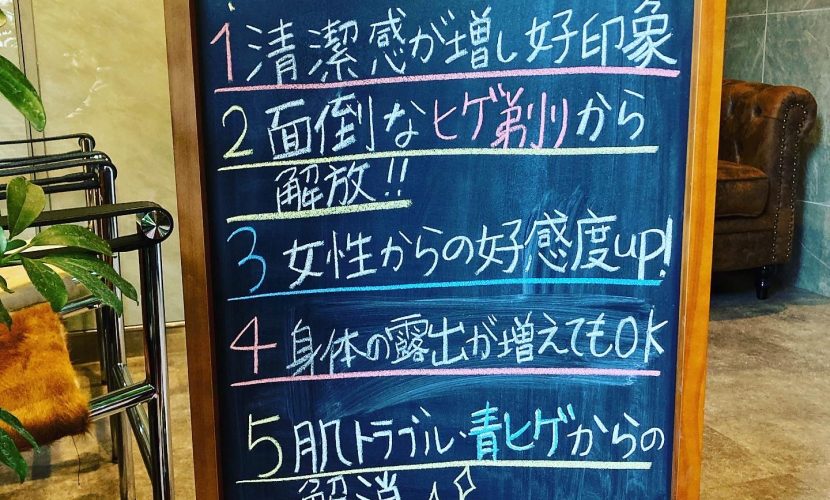 1 清潔感が増し好印象
2 面倒なヒゲ剃りから
解放!!
3 女性からの好感度up!
4 身体の露出が増えてもOK
5 肌トラブル・青ヒゲからの
解消